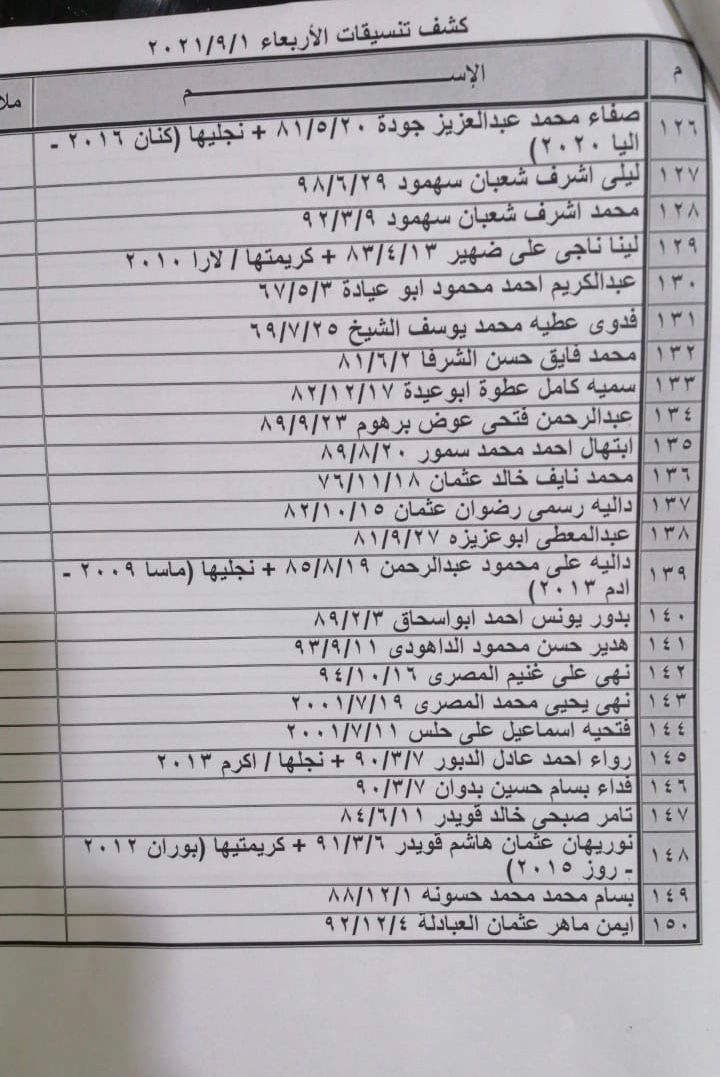 كشف تنسيقات الأربعاء ٢٠٢١/٩/١
م الإســــــــــم ملا
١٢٦ صفاء محمد عبدالعزيز جودة ٨١/٥/٢٠ + نجليها (كنان ٢٠١٦ -
اليا ٢٠٢٠)
١٢٧ ليلى اشرف شعبان سهمود ٩٨/٦/٢٩
١٢٨ محمد اشرف شعبان سهمود ٩٢/٣/٩
١٢٩ لينا ناجى على ضهير ٨٣/٤/١٣ + كريمتها / لارا ٢٠١٠
١٣٠ عبدالكريم احمد محمود ابو عيادة ٦٧/٥/٣
١٣١ فدوى عطيه محمد يوسف الشيخ ٦٩/٧/٢٥
١٣٢ محمد فايق حسن الشرفا ٨١/٦/٢
١٣٣ سميه كامل عطوة ابوعيدة ٨٢/١٢/١٧
١٣٤ عبدالرحمن فتحى عوض برهوم ٨٩/٩/٢٣
١٣٥ ابتهال احمد محمد سمور ٨٩/٨/٢٠
١٣٦ محمد نايف خالد عثمان ٧٦/١١/١٨
١٣٧ داليه رسمى رضوان عثمان ٨٢/١٠/١٥
١٣٨ عبدالمعطى ابوعزيزه ٨١/٩/٢٧
١٣٩ داليه على محمود عبدالرحمن ٨٥/٨/١٩ + نجليها (ماسا ٢٠٠٩ -
ادم ٢٠١٣)
١٤٠ بدور يونس احمد ابواسحاق ٨٩/٢/٣
١٤١ هدير حسن محمود الداهودى ٩٣/٩/١١
١٤٢ نهى على غنيم المصرى ٩٤/١٠/١٦
١٤٣ نهى يحيى محمد المصرى ٢٠٠١/٧/١٩
١٤٤ فتحيه اسماعيل على حلس ٢٠٠١/٧/١١
١٤٥ رواء احمد عادل الدبور ٩٠/٣/٧ + نجلها / اكرم ٢٠١٣
١٤٦ فداء بسام حسين بدوان ٩٠/٣/٧
١٤٧ تامر صبحى خالد قويدر ٨٤/٦/١١
١٤٨ نوريهان عثمان هاشم قويدر ٩١/٣/٦ + كريمتيها (بوران ٢٠١٢
- روز ٢٠١٥)
١٤٩ بسام محمد محمد حسونه ٨٨/١٢/١
١٥٠ ايمن ماهر عثمان العبادلة ٩٢/١٢/٤